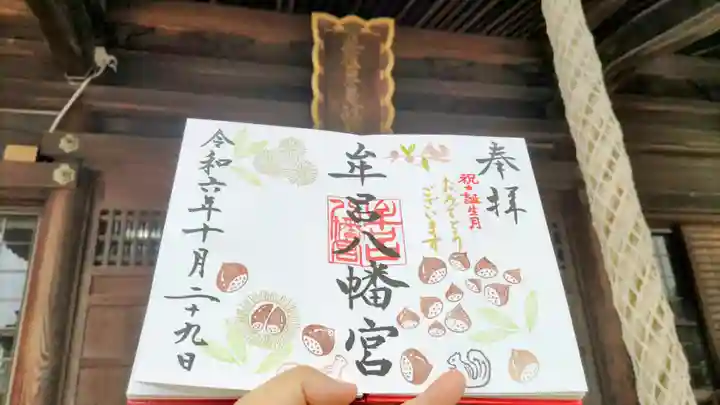 奉拝
祝♡誕生月
おめでとう
ございます
牟呂八幡宮
令和六年十月二十九日